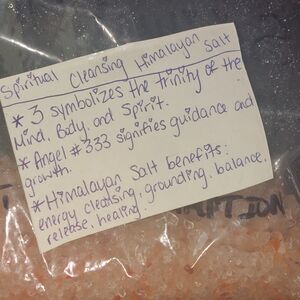 Spiritual Cleansing Himalayan Salt
* 3 symbolizes the trinity of the
Mind, Body, and Spirit.
* Angel # 333 signifies guidance and
growth.
* Himalayan Salt benefits:
energy cleansing, grounding, balance,
release, healing.